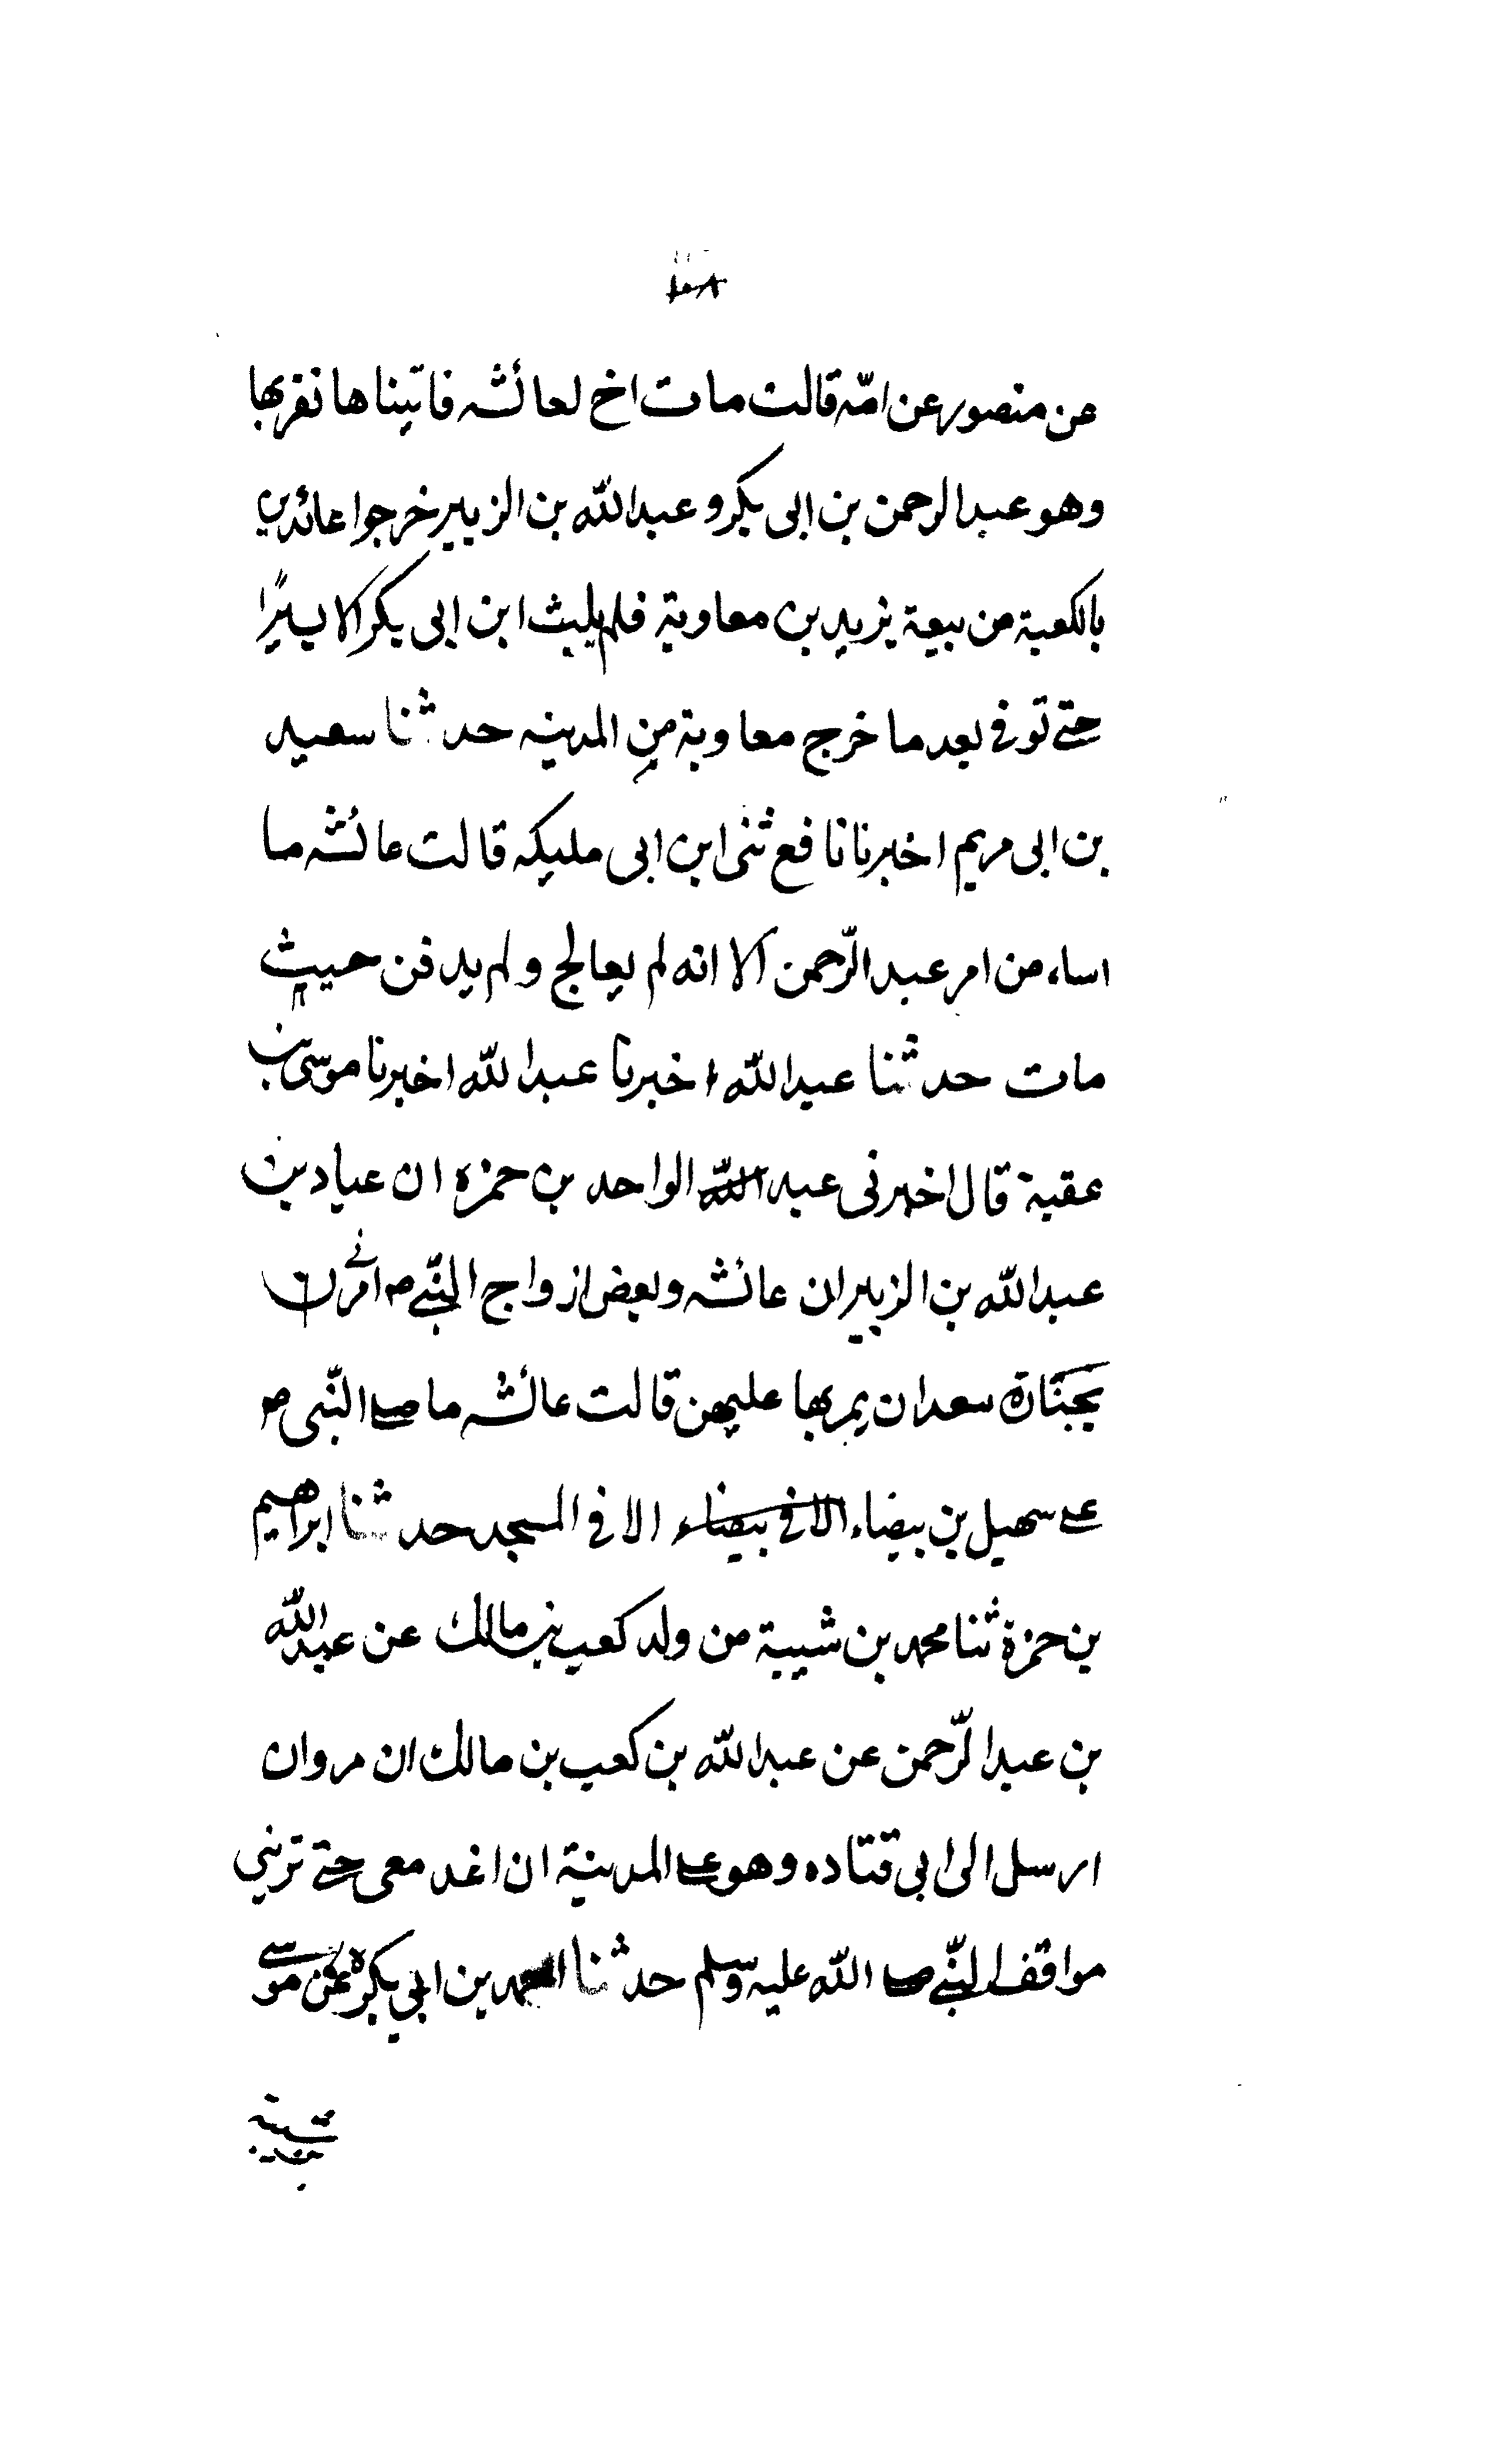 ١٠٨
عن منصور عن امّه قالت مات اخ لعائشه فاتيناها نغربها
وهو عبد الرحمن بن ابى بكر و عبد الله بن الزبير خرجوا عائدين
بالكعبة من بيعة يزيد بن معاوية فلم يلبث ابن ابى بكر الا يسيرًا
حتى توفى بعد ما خرج معاوية من المدينه حدثنا سعيد
بن ابى مريم اخبرنا نافع ثنى ابن ابى مليكه قالت عائشه ما
اساء من امر عبد الرّحمن الا انه لم يعالج و لم يدفن حيث
مات حدثنا عبد الله اخبرنا عبد الله اخبرنا موسى بن
عقبة قال اخبرنى عبد الله الواحد بن حمزه ان عباد بن
عبد الله بن الزبير ان عائشه وبعض ازواج النّبى ص امرن
بجنازة سعد ان يمر بها عليهن قالت عائشه ما صلى النّبى ص
على سهيل بن بيضاء الا فى بيضاء الا فى المسجد حدثنا ابراهيم
بن حمزة ثنا محمد بن شيبة من ولد كعب بن مالك عن عبد الله
بن عبد الرّحمن عن عبد الله بن كعب بن مالك ان مروان
ارسل الى ابى قتاده وهو على المدينة ان اغد معى حتى ترينى
مواقف النّبى صلى الله عليه وسلم حدثنا بن ابى بكره عن موسى